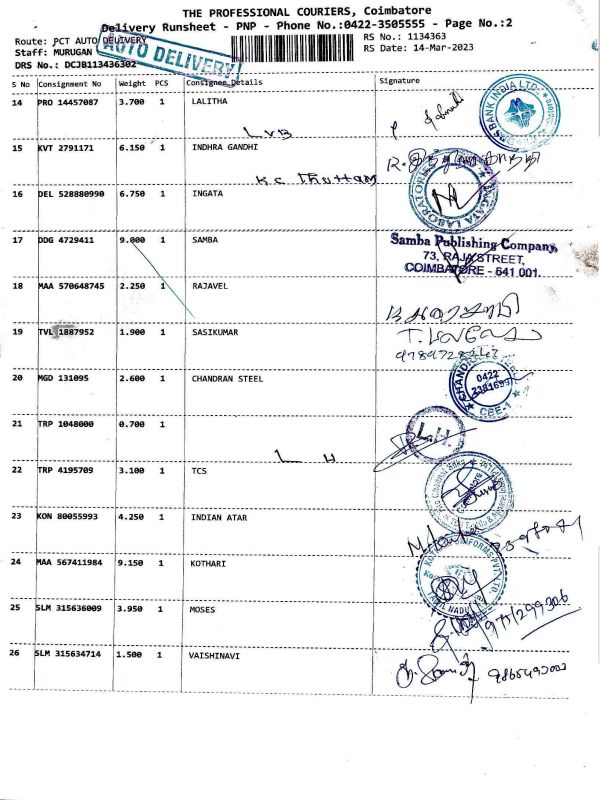 THE PROFESSIONAL COURIERS, Coimbatore
Delivery Runsheet - PNP - Phone No.:0422-3505555 - Page No.:2
Route: PCT AUTO DELIVERY
RS No.: 1134363
Staff: MURUGAN
RS Date: 14-Mar-2023
DRS No.: DCJB113436302
AUTO DELIVERY
S No Consignment No Weight PCS Consignee Details Signature
14 PRO 14457087 3.700 1 LALITHA
LVB
BANK INDIA LTD
15 KVT 2791171 6.150 1 INDHRA GANDHI
K.C. Thottam
16 DEL 528880990 6.750 1 INGATA
17 DDG 4729411 9.000 1 SAMBA
Samba Publishing Company,
73, RAJA STREET,
COIMBATORE - 641 001.
18 MAA 570648745 2.250 1 RAJAVEL
19 TVL 1887952 1.900 1 SASIKUMAR
20 MGD 131095 2.600 1 CHANDRAN STEEL
0422
CBE-1
21 TRP 1048000 0.700 1
L H
L.H.
22 TRP 4195709 3.100 1 TCS
23 KON 80055993 4.250 1 INDIAN ATAR
24 MAA 567411984 9.150 1 KOTHARI
TAMIL NADU
25 SLM 315636009 3.950 1 MOSES
26 SLM 315634714 1.500 1 VAISHINAVI